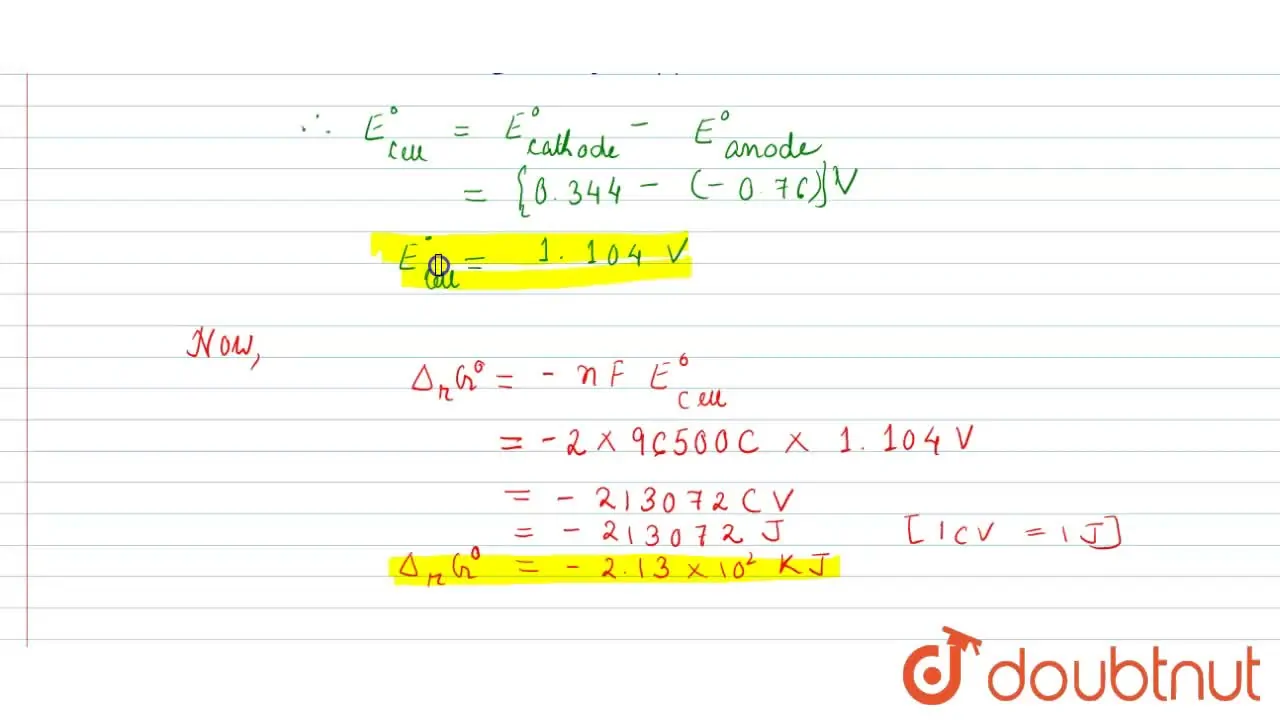 ∴ E°cell = E°cathode - E°anode
= {0.344 - (-0.76)}V
E°cell = 1.104 V
Now,
ΔrG° = - nF E°cell
= -2 × 96500C × 1.104V
= - 213072 CV
= - 213072 J [1CV = 1J]
ΔrG° = - 2.13 × 10² KJ
doubtnut